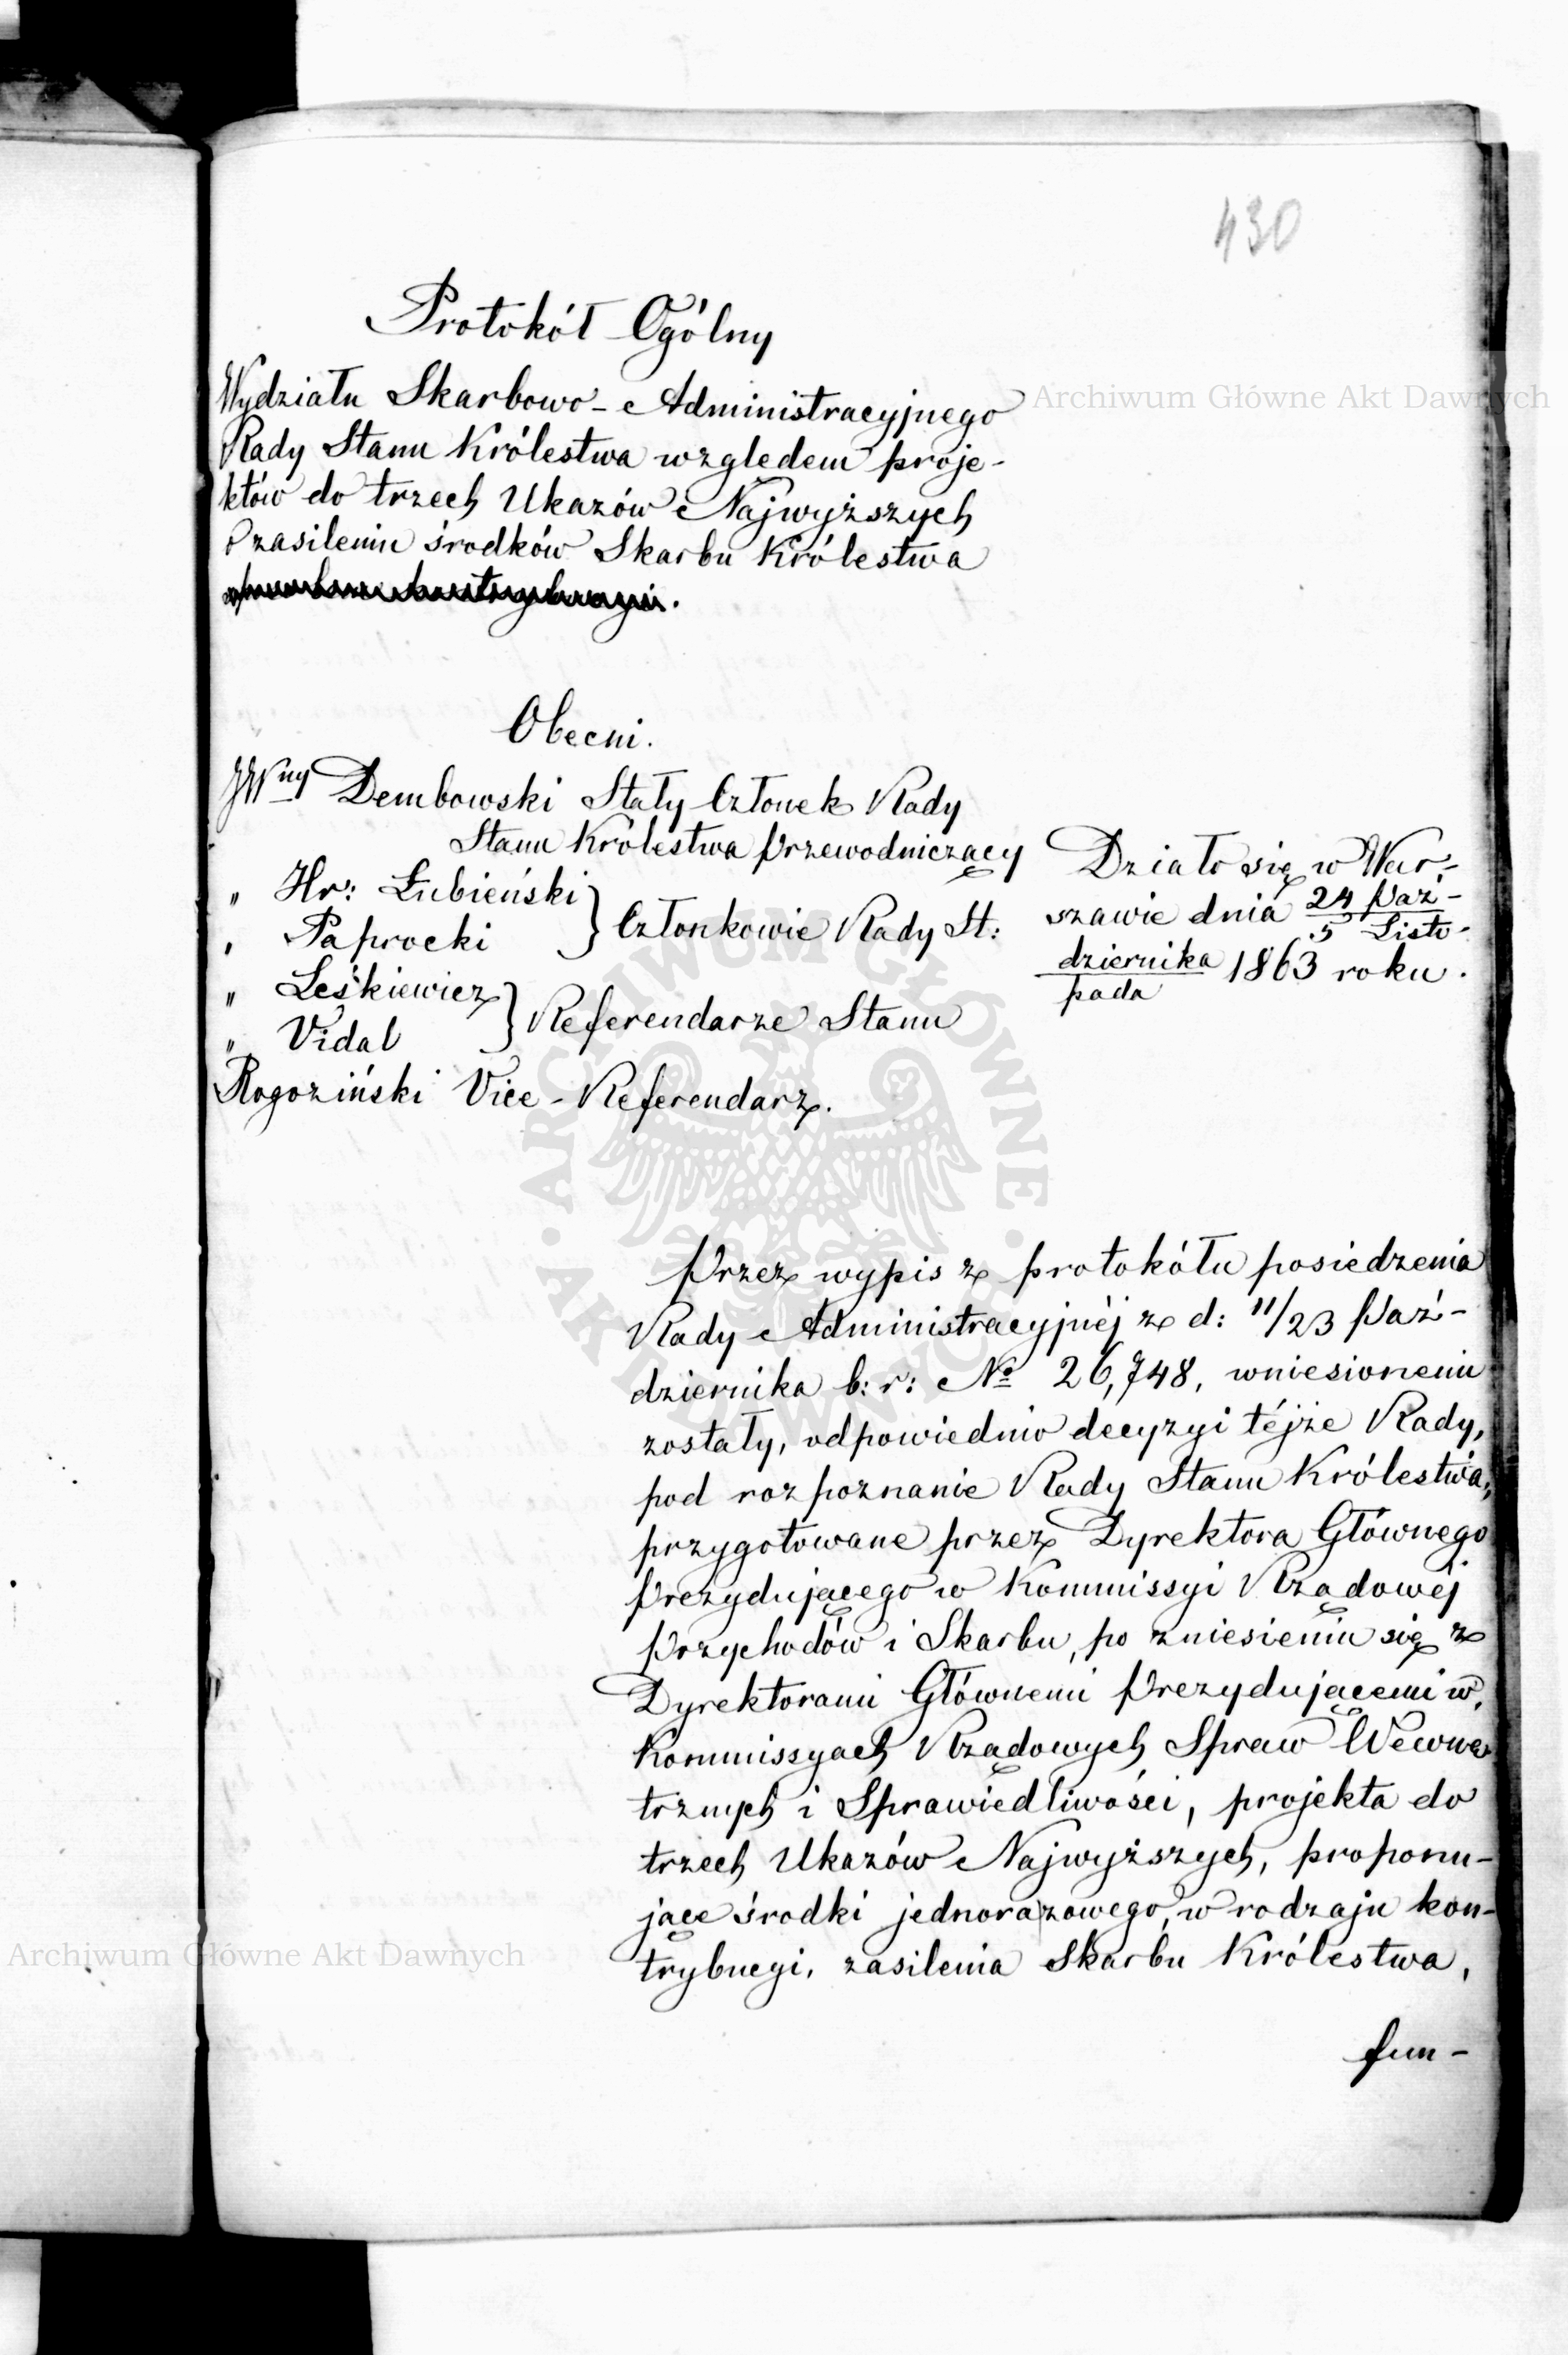 430
Protokół Ogólny
Wydziału Skarbowo-Administracyjnego
Rady Stanu Królestwa względem proje-
któw do trzech Ukazów Najwyższych
o zasileniu środków Skarbu Królestwa
Obecni.
JWny Dembowski Stały Członek Rady
Stanu Królestwa Przewodniczący
" Hr: Łubieński
" Paprocki } Członkowie Rady St:
" Leśkiewicz
" Vidal } Referendarze Stanu
Rogoziński Vice-Referendarz.
Działo się w War-
szawie dnia 24 Paź-
5 Listo-
dziernika 1863 roku.
pada
Przez wypis z protokółu posiedzenia
Rady Administracyjnéj z d: 11/23 Paź-
dziernika b: r: No 26,748, wniesionemi
zostały, odpowiednio decyzyi téjże Rady,
pod rozpoznanie Rady Stanu Królestwa,
przygotowane przez Dyrektora Głównego
Prezydującego w Kommissyi Rządowéj
Przychodów i Skarbu, po zniesieniu się z
Dyrektorami Głównemi Prezydującemi w
Kommissyach Rządowych Spraw Wewnę-
trznych i Sprawiedliwości, projekta do
trzech Ukazów Najwyższych, proponu-
jące środki jednorazowego, w rodzaju kon-
trybucyi, zasilenia Skarbu Królestwa,
fun-
Archiwum Główne Akt Dawnych
Archiwum Główne Akt Dawnych
ARCHIWUM GŁÓWNE AKT DAWNYCH